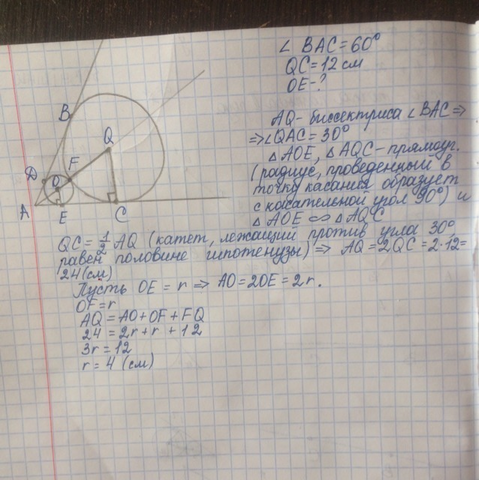 ∠ BAC = 60°
QC = 12 см
OE - ?
AQ - биссектриса ∠ BAC ⇒
⇒ ∠QAC = 30°
△ AOE, △ AQC - прямоуг.
(радиус, проведенный в
точку касания образует
с касательной угол 90°) и
△ AOE ∽ △ AQC
B
Q
F
D
O
A
E
C
QC = 1/2 AQ (катет, лежащий против угла 30°
равен половине гипотенузы) ⇒ AQ = 2QC = 2·12 =
24 (см)
Пусть OE = r ⇒ AO = 2OE = 2r.
OF = r
AQ = AO + OF + FQ
24 = 2r + r + 12
3r = 12
r = 4 (см)